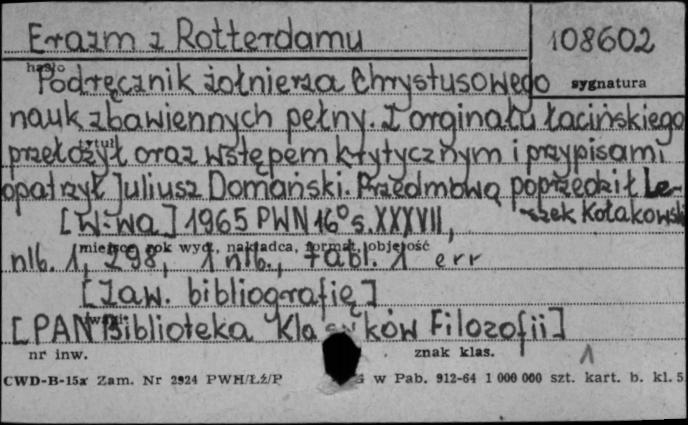 Erazm z Rotterdamu
108602
hasło
sygnatura
Podręcznik żołnierza Chrystusowego
nauk zbawiennych pełny. Z orginału łacińskiego
tytuł
przełożył oraz wstępem krytycznym i przypisami
opatrzył Juliusz Domański. Przedmową poprzedził Le-
szek Kołakowski
[W-wa] 1965 PWN 16° s. XXXVII,
miejsce, rok wyd., nakładca, format, objętość
nlb. 1, 298, 1 nlb., tabl. 1 err
[Zaw. bibliografię]
[PAN Biblioteka Klasyków Filozofii]
nr inw.
znak klas.
CWD-B-15a Zam. Nr 2924 PWH/Łż/P w Pab. 912-64 1 000 000 szt. kart. b. kl. 5